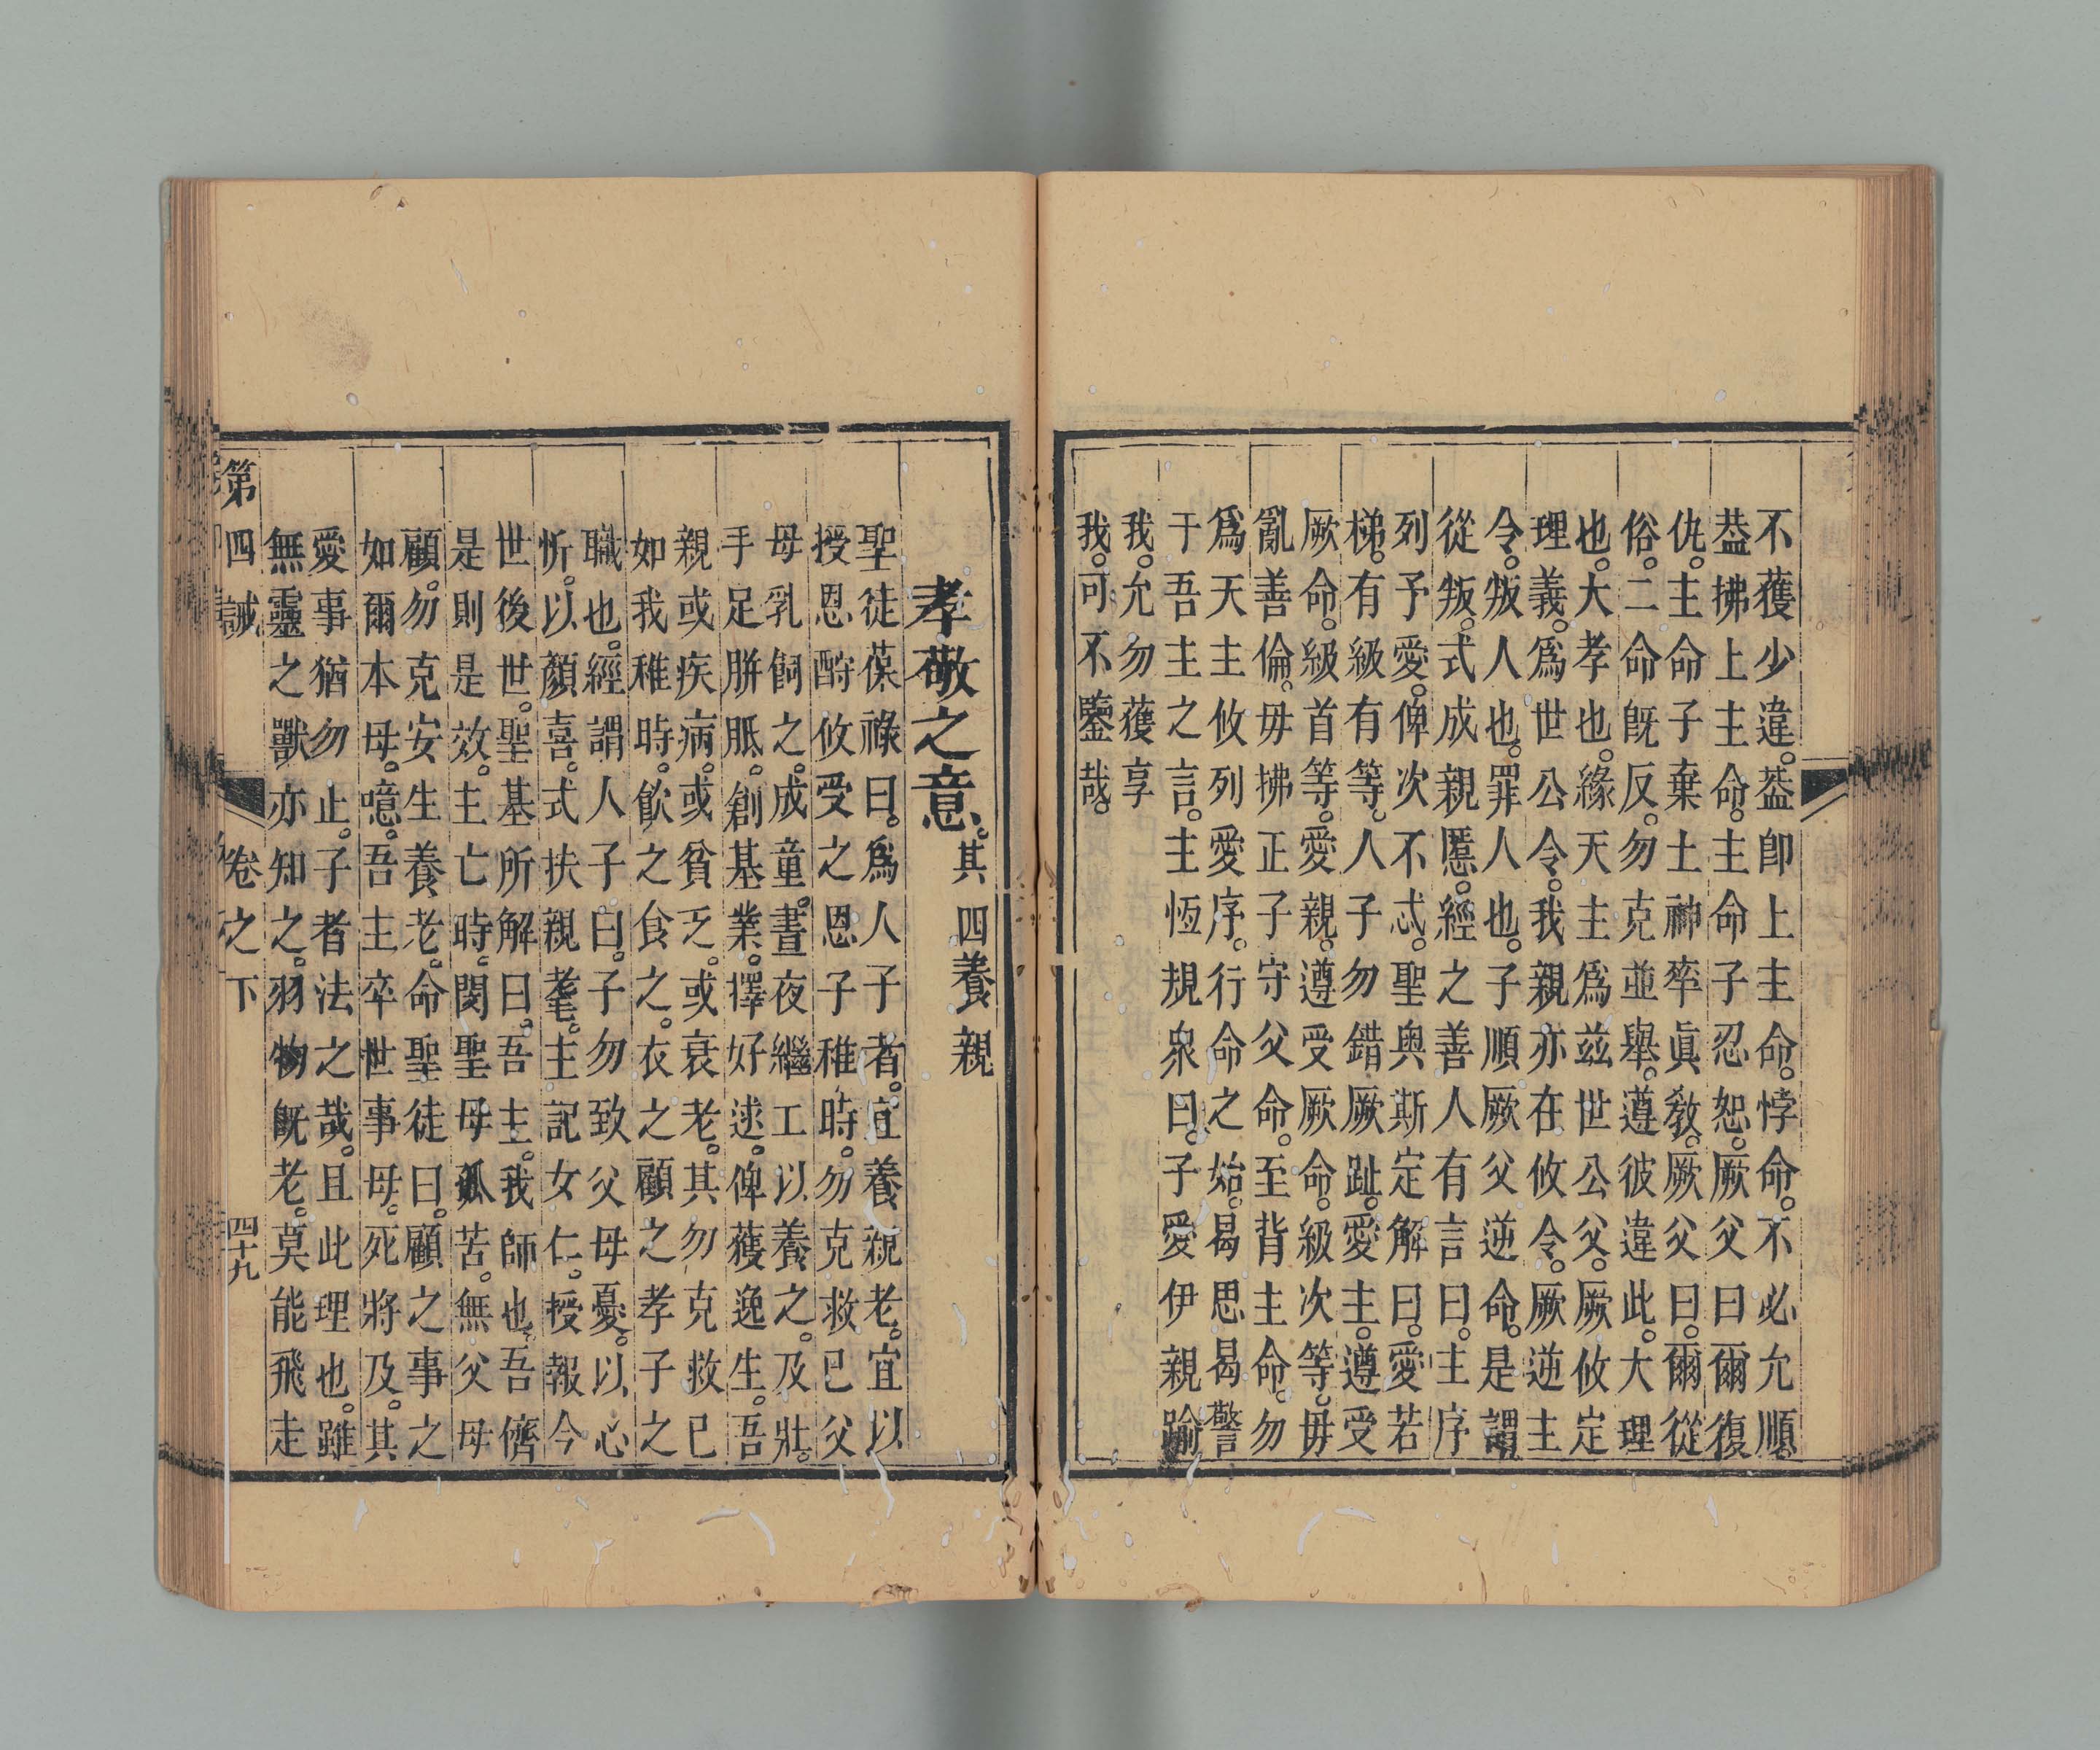 不獲少違。葢卽上主命。悖命。不必允順。
葢拂上主命。主命子忍恕。厥父曰爾復
仇。主命子棄土神率眞教。厥父曰。爾從
俗。二命旣反。勿克並舉。遵彼違此。大理
也。大孝也。緣天主爲兹世公父。厥攸定
理義。爲世公令。我親亦在攸令。厥逆主
令。叛人也。罪人也。子順厥父逆命。是謂
從叛。式成親慝。經之善人有言曰。主序
列予愛。俾次不忒。聖奥斯定解曰。愛若
梯。有級有等。人子勿錯厥趾。愛主。遵受
厥命。級首等。愛親。遵受厥命。級次等。毋
亂善倫。毋拂正子守父命。至背主命。勿
爲天主攸列愛序。行命之始。曷思曷警
于吾主之言。主恆規衆曰。子愛伊親踰
我。允勿獲享
我。可不鑒哉。
孝敬之意。其四養親
聖徒葆祿曰。爲人子者。宜養親老。宜以
授恩酧攸受之恩子稚時。勿克救已父
母乳飼之。成童。晝夜繼工以養之。及壯。
手足胼胝。創基業。擇好逑。俾獲逸生。吾
親或疾病。或貧乏。或衰老。其勿克救已
如我稚時。飲之食之。衣之顧之孝子之
職也。經謂人子曰。子勿致父母憂。以心
忻。以顏喜。式扶親耄。主記女仁。授報今
世後世。聖基所解曰。吾主。我師也。吾儕
是則是效。主亡時。閔聖母孤苦。無父母
顧。勿克安生養老。命聖徒曰。顧之事之
如爾本母。噫。吾主卒世事母。死將及。其
愛事猶勿止。子者法之哉。且此理也。雖
無靈之獸亦知之。羽物旣老。莫能飛走
第四誡 卷之下 四十九